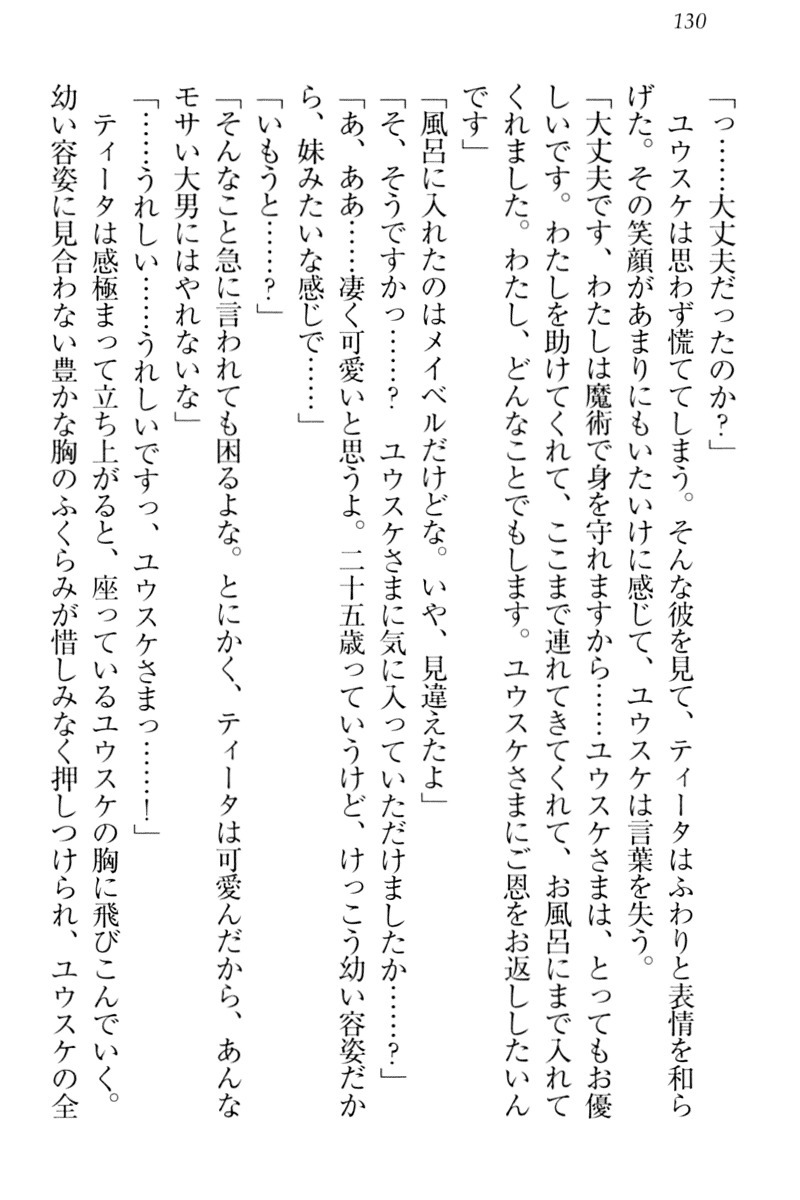 130
「っ……大丈夫だったのか？」
　ユウスケは思わず慌ててしまう。そんな彼を見て、ティータはふわりと表情を和ら
げた。その笑顔があまりにもいたいけに感じて、ユウスケは言葉を失う。
「大丈夫です、わたしは魔術で身を守れますから……ユウスケさまは、とってもお優
しいです。わたしを助けてくれて、ここまで連れてきてくれて、お風呂にまで入れて
くれました。わたし、どんなことでもします。ユウスケさまにご恩をお返ししたいん
です」
「風呂に入れたのはメイベルだけどな。いや、見違えたよ」
「そ、そうですかっ……？　ユウスケさまに気に入っていただけましたか……？」
「あ、ああ……凄く可愛いと思うよ。二十五歳っていうけど、けっこう幼い容姿だか
ら、妹みたいな感じで……」
「いもうと……？」
「そんなこと急に言われても困るよな。とにかく、ティータは可愛んだから、あんな
モサい大男にはやれないな」
「……うれしい……うれしいですっ、ユウスケさまっ……！」
　ティータは感極まって立ち上がると、座っているユウスケの胸に飛びこんでいく。
幼い容姿に見合わない豊かな胸のふくらみが惜しみなく押しつけられ、ユウスケの全